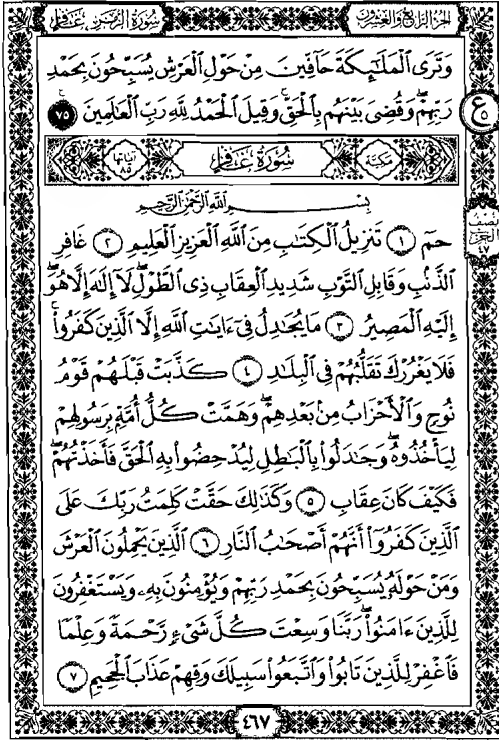 الجزء الرابع والعشرون
سورة الزمر غافر
وَتَرَى ٱلْمَلَٰٓئِكَةَ حَآفِّينَ مِنْ حَوْلِ ٱلْعَرْشِ يُسَبِّحُونَ بِحَمْدِ
رَبِّهِمْ ۖ وَقُضِىَ بَيْنَهُم بِٱلْحَقِّ ۚ وَقِيلَ ٱلْحَمْدُ لِلَّهِ رَبِّ ٱلْعَٰلَمِينَ ٧٥
ع ٥
مكية سُورَةُ غَافِرٍ آياتها ٨٥
بِسْمِ ٱللَّهِ ٱلرَّحْمَٰنِ ٱلرَّحِيمِ
حمٓ ١ تَنزِيلُ ٱلْكِتَٰبِ مِنَ ٱللَّهِ ٱلْعَزِيزِ ٱلْعَلِيمِ ٢ غَافِرِ
ٱلذَّنۢبِ وَقَابِلِ ٱلتَّوْبِ شَدِيدِ ٱلْعِقَابِ ذِى ٱلطَّوْلِ ۖ لَآ إِلَٰهَ إِلَّا هُوَ ۖ
إِلَيْهِ ٱلْمَصِيرُ ٣ مَا يُجَٰدِلُ فِىٓ ءَايَٰتِ ٱللَّهِ إِلَّا ٱلَّذِينَ كَفَرُوا۟
فَلَا يَغْرُرْكَ تَقَلُّبُهُمْ فِى ٱلْبِلَٰدِ ٤ كَذَّبَتْ قَبْلَهُمْ قَوْمُ
نُوحٍ وَٱلْأَحْزَابُ مِنۢ بَعْدِهِمْ ۖ وَهَمَّتْ كُلُّ أُمَّةٍۭ بِرَسُولِهِمْ
لِيَأْخُذُوهُ ۖ وَجَٰدَلُوا۟ بِٱلْبَٰطِلِ لِيُدْحِضُوا۟ بِهِ ٱلْحَقَّ فَأَخَذْتُهُمْ ۖ
فَكَيْفَ كَانَ عِقَابِ ٥ وَكَذَٰلِكَ حَقَّتْ كَلِمَتُ رَبِّكَ عَلَى
ٱلَّذِينَ كَفَرُوٓا۟ أَنَّهُمْ أَصْحَٰبُ ٱلنَّارِ ٦ ٱلَّذِينَ يَحْمِلُونَ ٱلْعَرْشَ
وَمَنْ حَوْلَهُۥ يُسَبِّحُونَ بِحَمْدِ رَبِّهِمْ وَيُؤْمِنُونَ بِهِۦ وَيَسْتَغْفِرُونَ
لِلَّذِينَ ءَامَنُوا۟ ۖ رَبَّنَا وَسِعْتَ كُلَّ شَىْءٍ رَّحْمَةً وَعِلْمًا
فَٱغْفِرْ لِلَّذِينَ تَابُوا۟ وَٱتَّبَعُوا۟ سَبِيلَكَ وَقِهِمْ عَذَابَ ٱلْجَحِيمِ ٧
٤٦٧